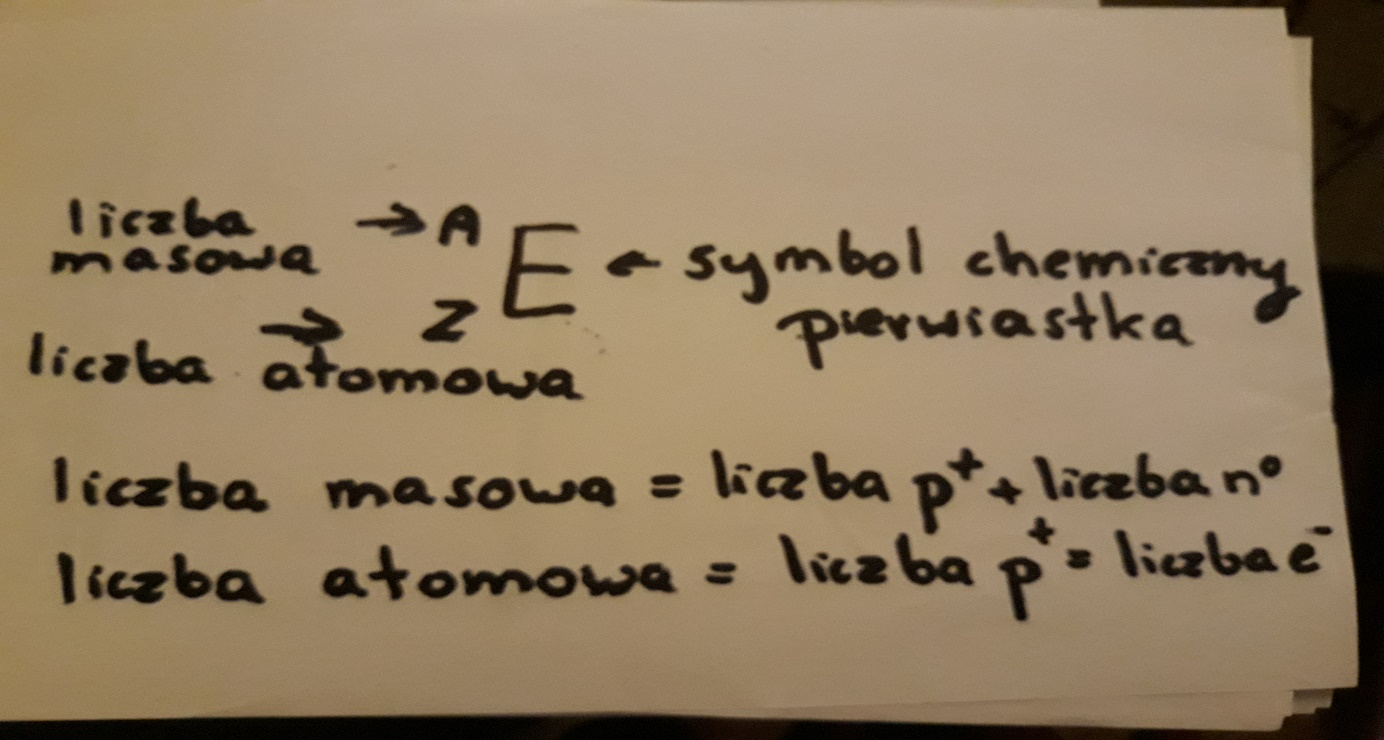 liczba masowa → A E ← symbol chemiczny
pierwiastka
liczba atomowa → Z
liczba masowa = liczba p⁺ + liczba n⁰
liczba atomowa = liczba p⁺ = liczba e⁻